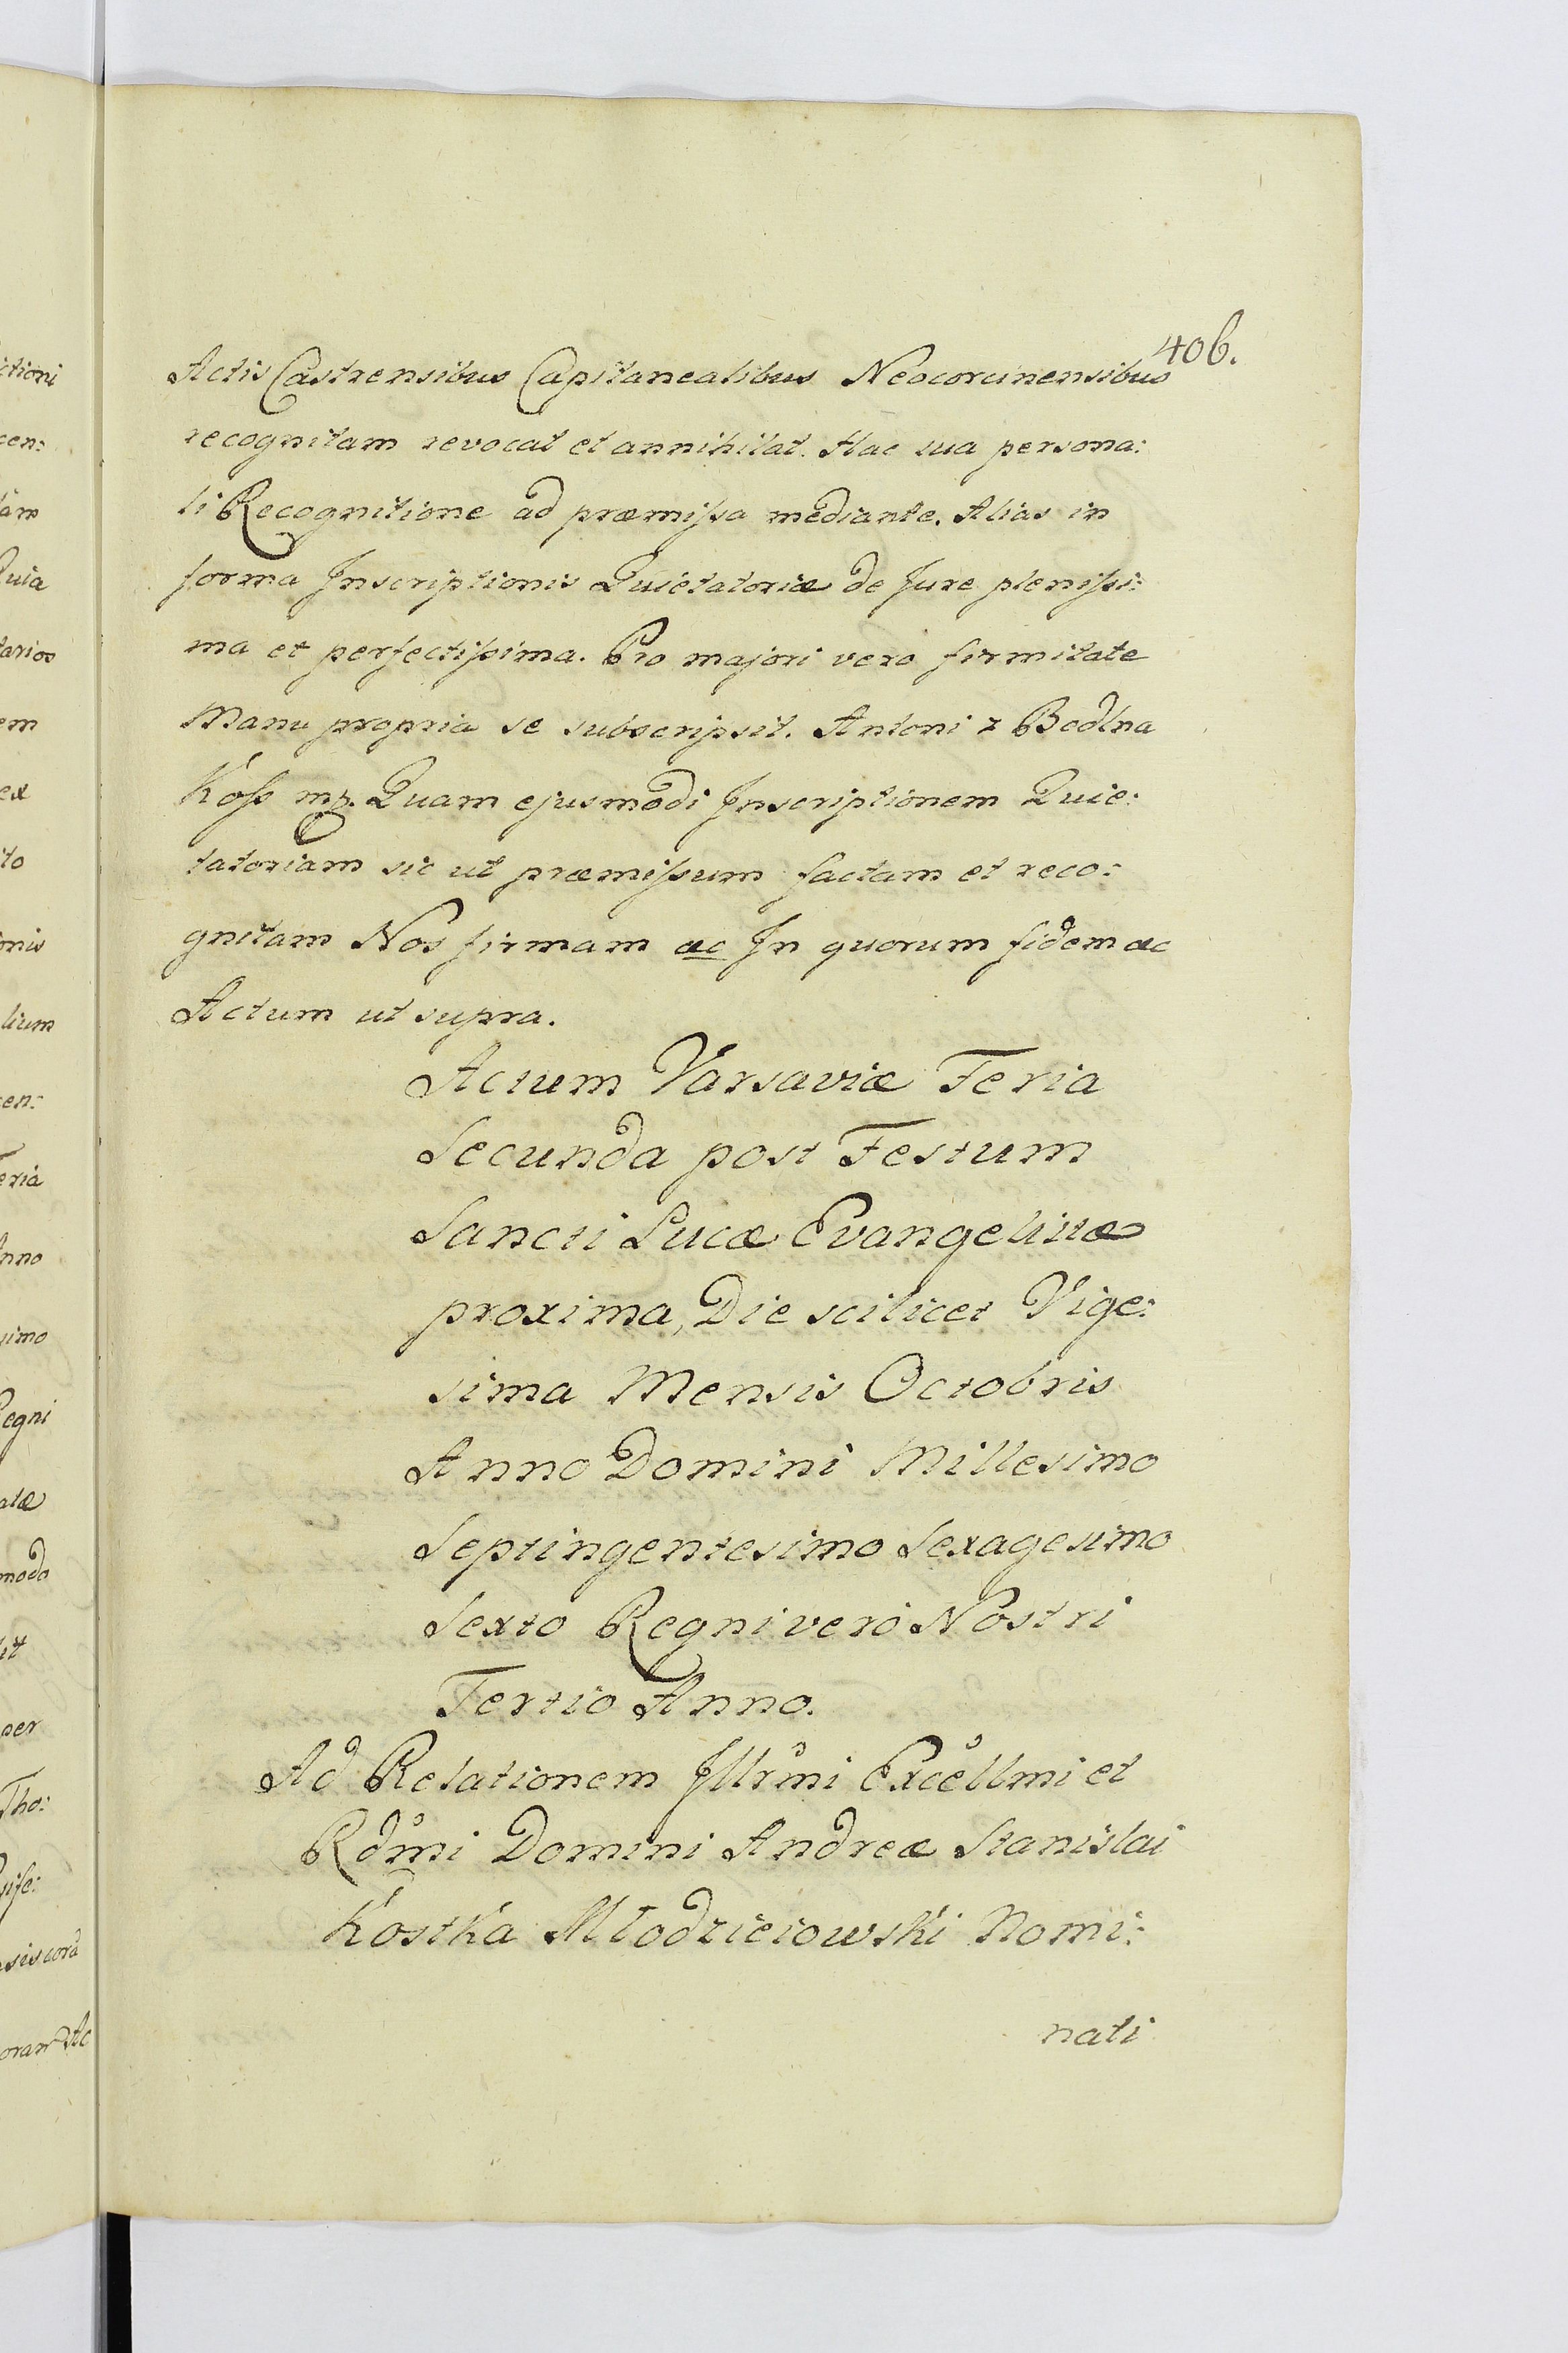 406.
Actis Castrensibus Capitanealibus Neocorcinensibus
recognitam revocat et annihilat. Hac sua persona:
li Recognitione ad præmiſsa mediante. Alias in
forma Inscriptionis Quietatoriæ de Jure pleniſsi:
ma et perfectiſsima. Pro majori vero firmitate
Manu propria se subscripsit. Antoni z Bodlna
Koſs mp. Quam ejusmodi Inscriptionem Quie:
tatoriam sic ut præmiſsum factam et reco:
gnitam Nos firmam &c In quorum fidem &c
Actum ut supra.
Actum Varsaviæ Feria
Secunda post Festum
Sancti Lucæ Evangelistæ
proxima, Die scilicet Vige:
sima Mensis Octobris
Anno Domini Millesimo
Septingentesimo Sexagesimo
Sexto Regni vero Nostri
Tertio Anno.
Ad Relationem Illrmi Excellmi et
Rdmi Domini Andreæ Stanislai
Kostka Młodzieiowski Nomi:
nati
ctioni
cen:
tam
Quia
tarios
em
ex
ito
onis
lium
cen:
eria
Anno
simo
Regni
atæ
modo
it
per
Tho: